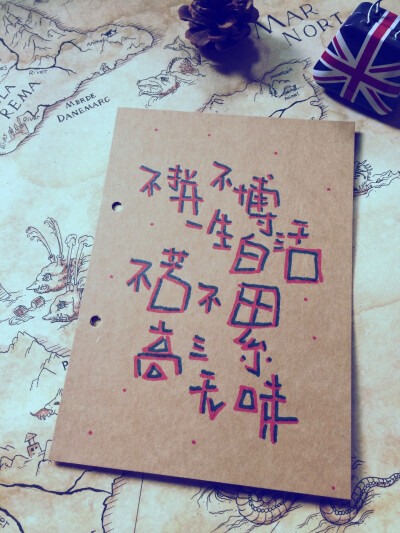 MAR
NORT
LA
REMA
River
MERDE
DANEMARC
不拼不博
一生白活
不苦不累
高三无味